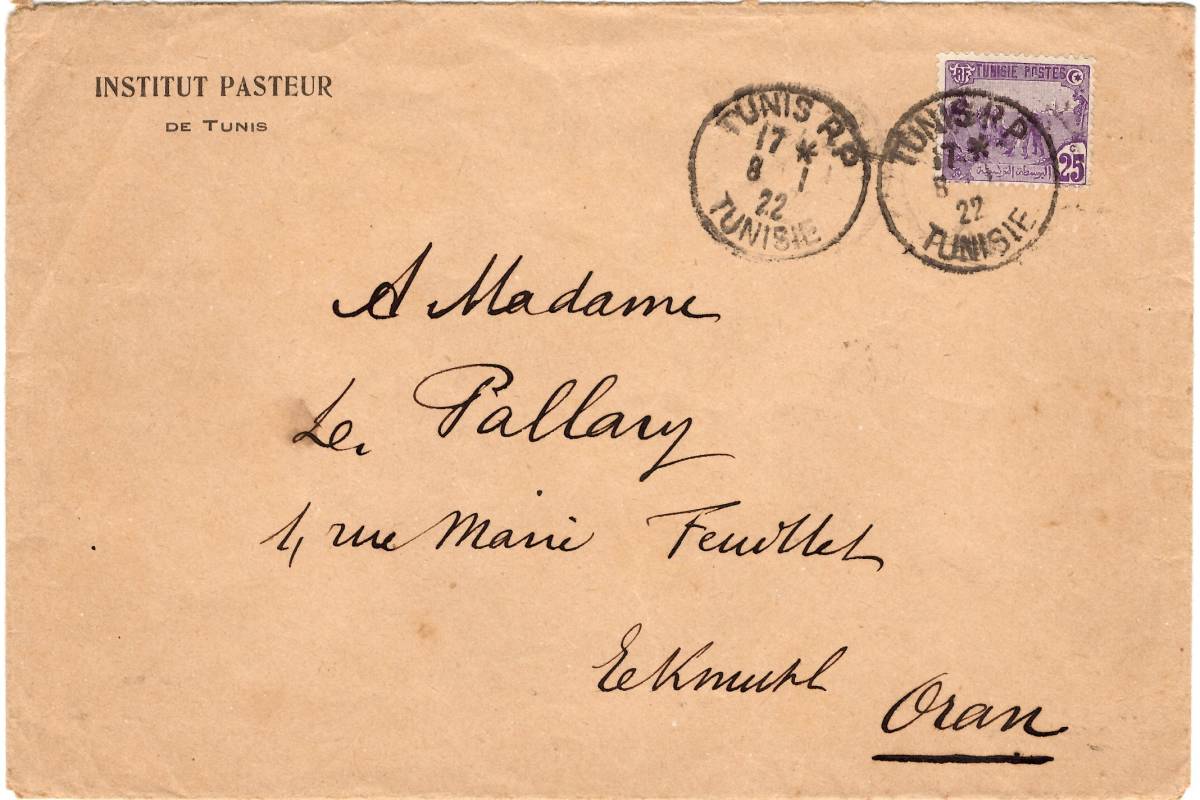 INSTITUT PASTEUR
DE TUNIS
TUNIS R.P
17 *
8 1
22
TUNISIE
TUNIS R.P
17 *
8
22
TUNISIE
RF TUNISIE POSTES
c.
25
البوسطة التونسية
A Madame
Le Pallary
1, rue Marie Feuillet
Eckmuhl
Oran